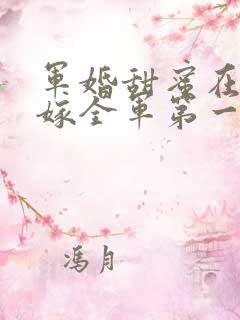 军婚甜蜜在
嫁全军第一
冯月